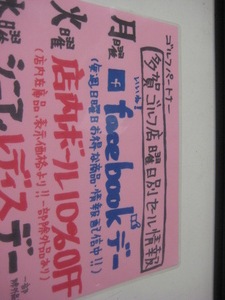 ゴルフパートナー
多賀ゴルフ店 曜日別セール情報
いいね!
月曜 facebookデー
(毎週日曜日お得な商品・情報配信中!!)
火曜 店内ボール10%OFF
(店内在庫品、表示価格より!!一部除外品あり)
水曜 シニア・レディスデー
一部